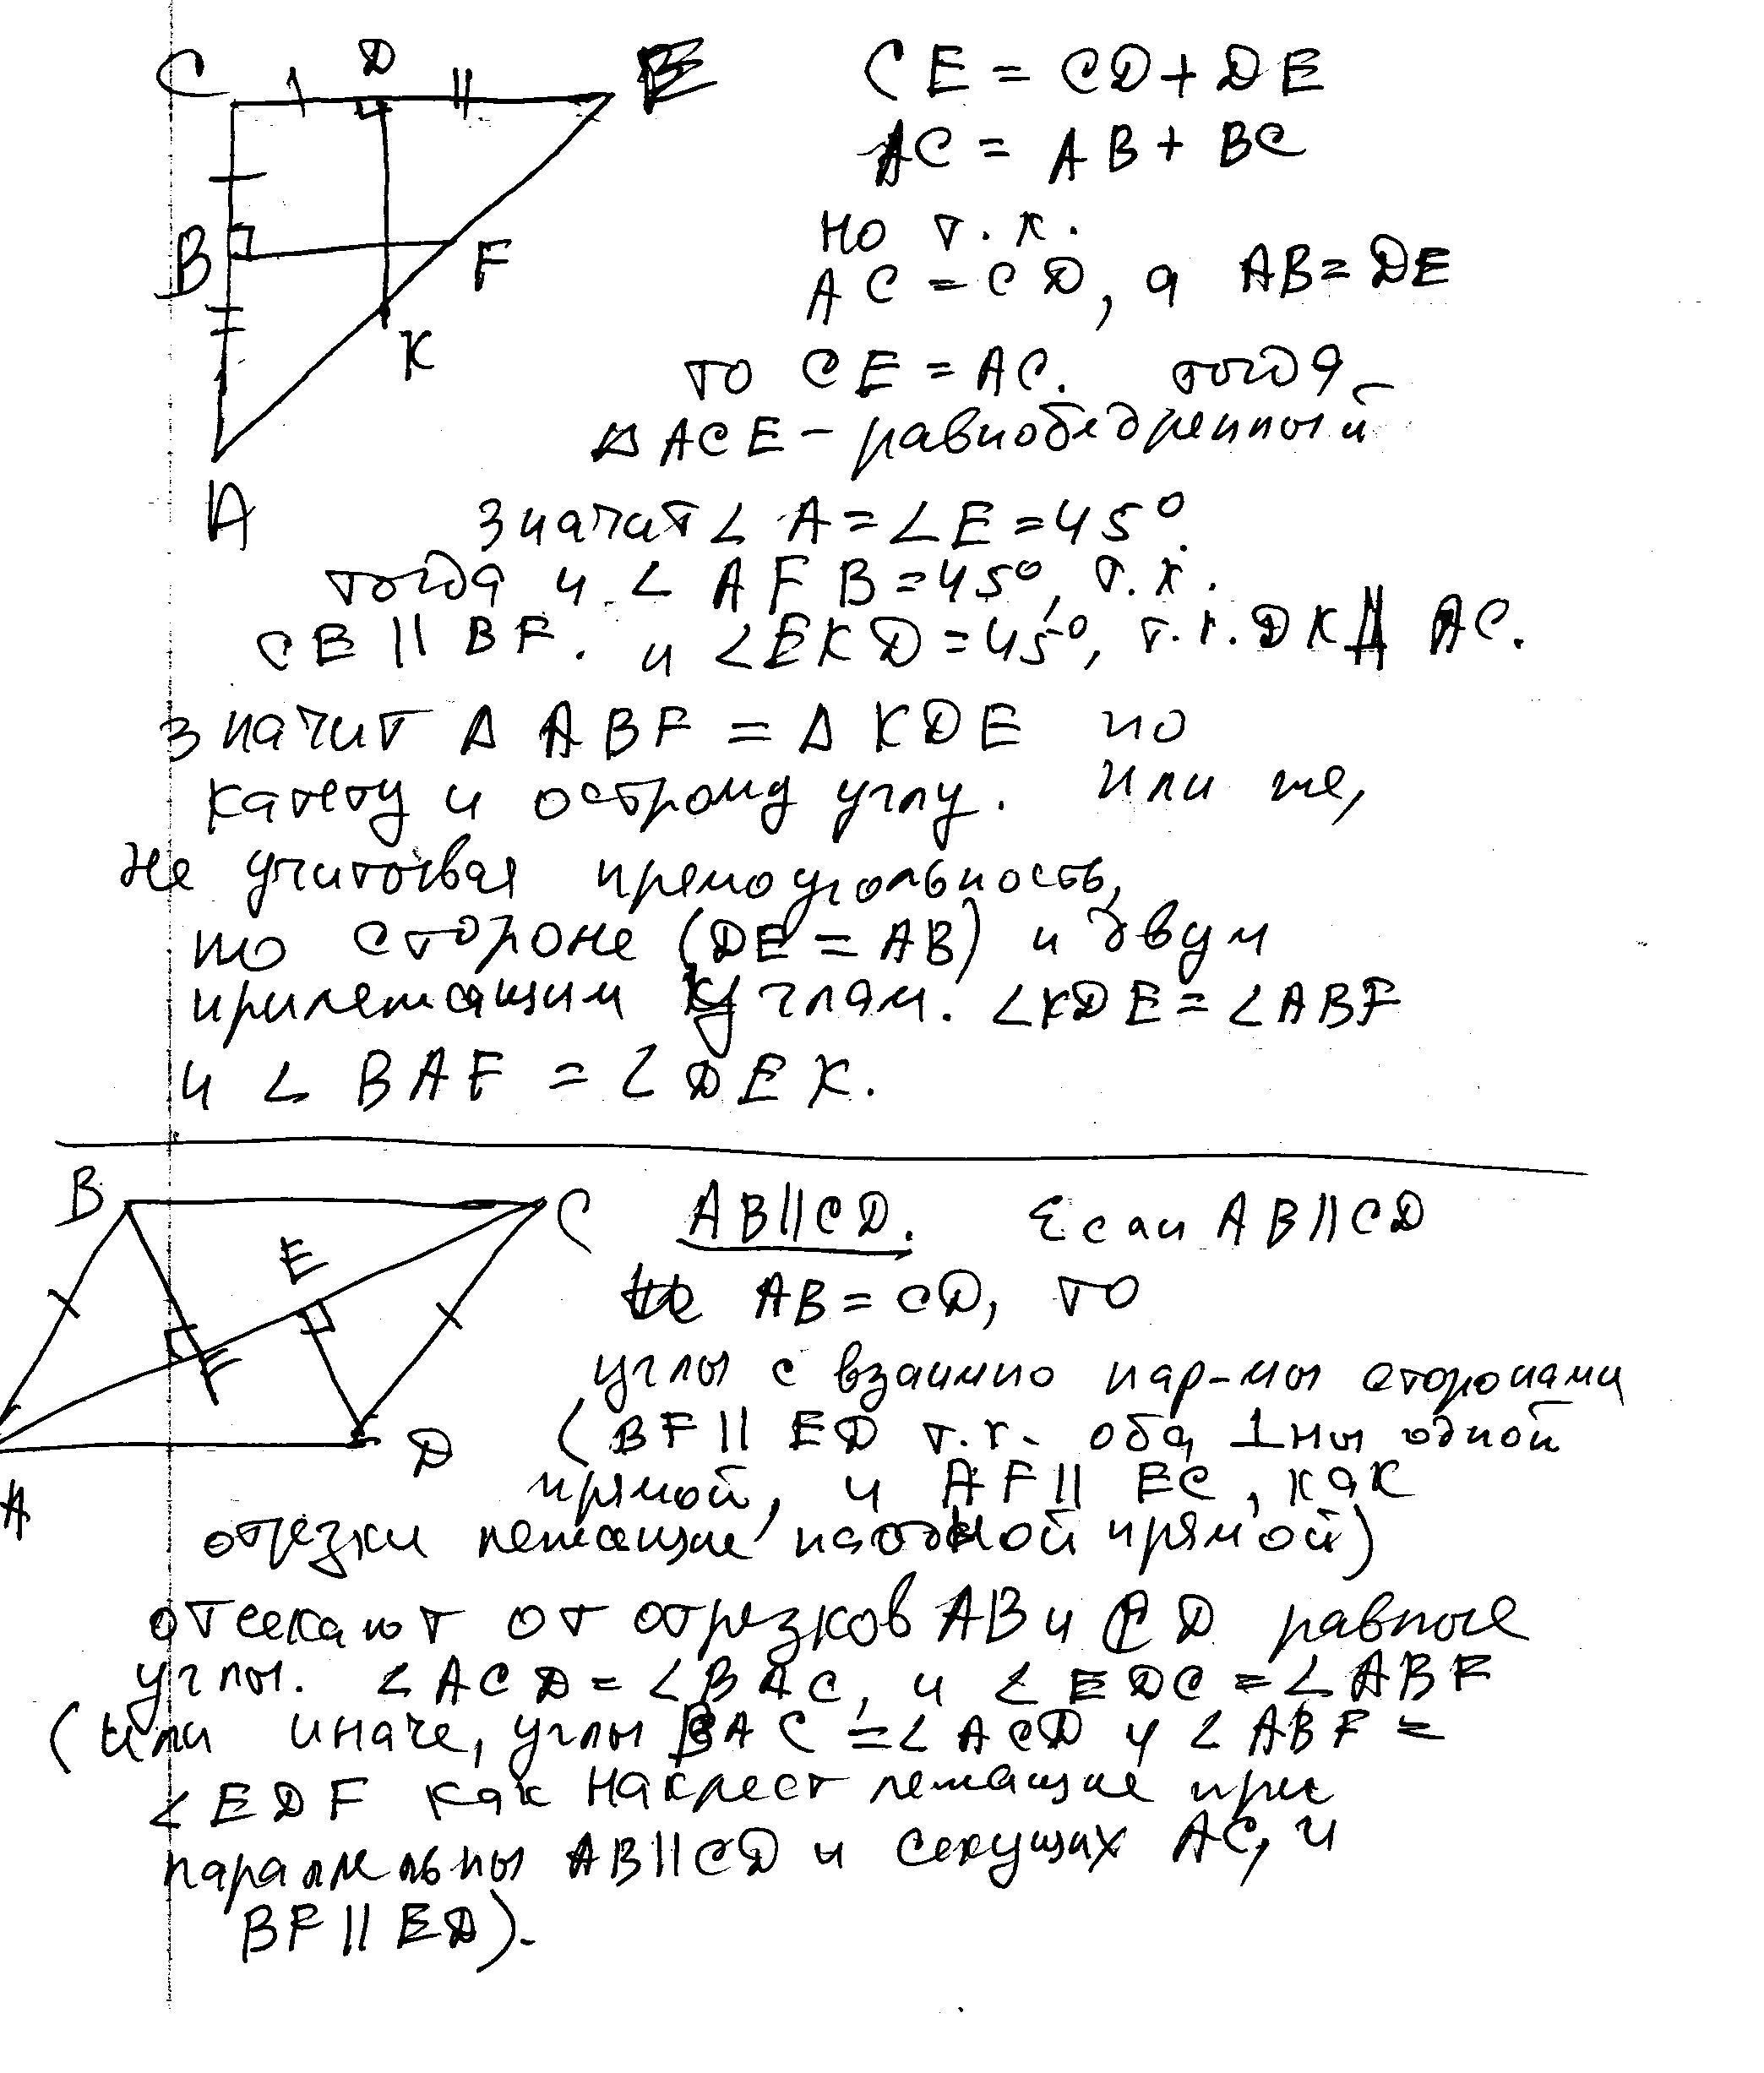 C D E
B F
K
A
CE = CD + DE
AC = AB + BC
но т.к.
AC = CD, а AB = DE
то CE = AC. тогда
Δ ACE – равнобедренный
значит ∠ A = ∠E = 45°.
тогда и ∠ AFB = 45°, т.к.
CE || BF. и ∠EKD = 45°, т.к. DK || AC.
значит Δ ABF = Δ KDE по
катету и острому углу. или же,
не учитывая прямоугольность,
по стороне (DE = AB) и двум
прилежащим углам. ∠KDE = ∠ABF
и ∠ BAF = ∠DEK.
B C
E
F
D
A
AB||CD. Если AB||CD
AB = CD, то
углы с взаимно пар-мы сторонами
(BF || ED т.к. оба ⊥ны одной
прямой, и AF || EC, как
отрезки лежащие на одной прямой)
отсекают от отрезков AB и CD равные
углы. ∠ACD = ∠BAC, и ∠EDC = ∠ABF
(или иначе, углы BAC = ∠ACD и ∠ABF =
∠EDF как накрест лежащие при
параллельны AB||CD и секущих AC, и
BF || ED).